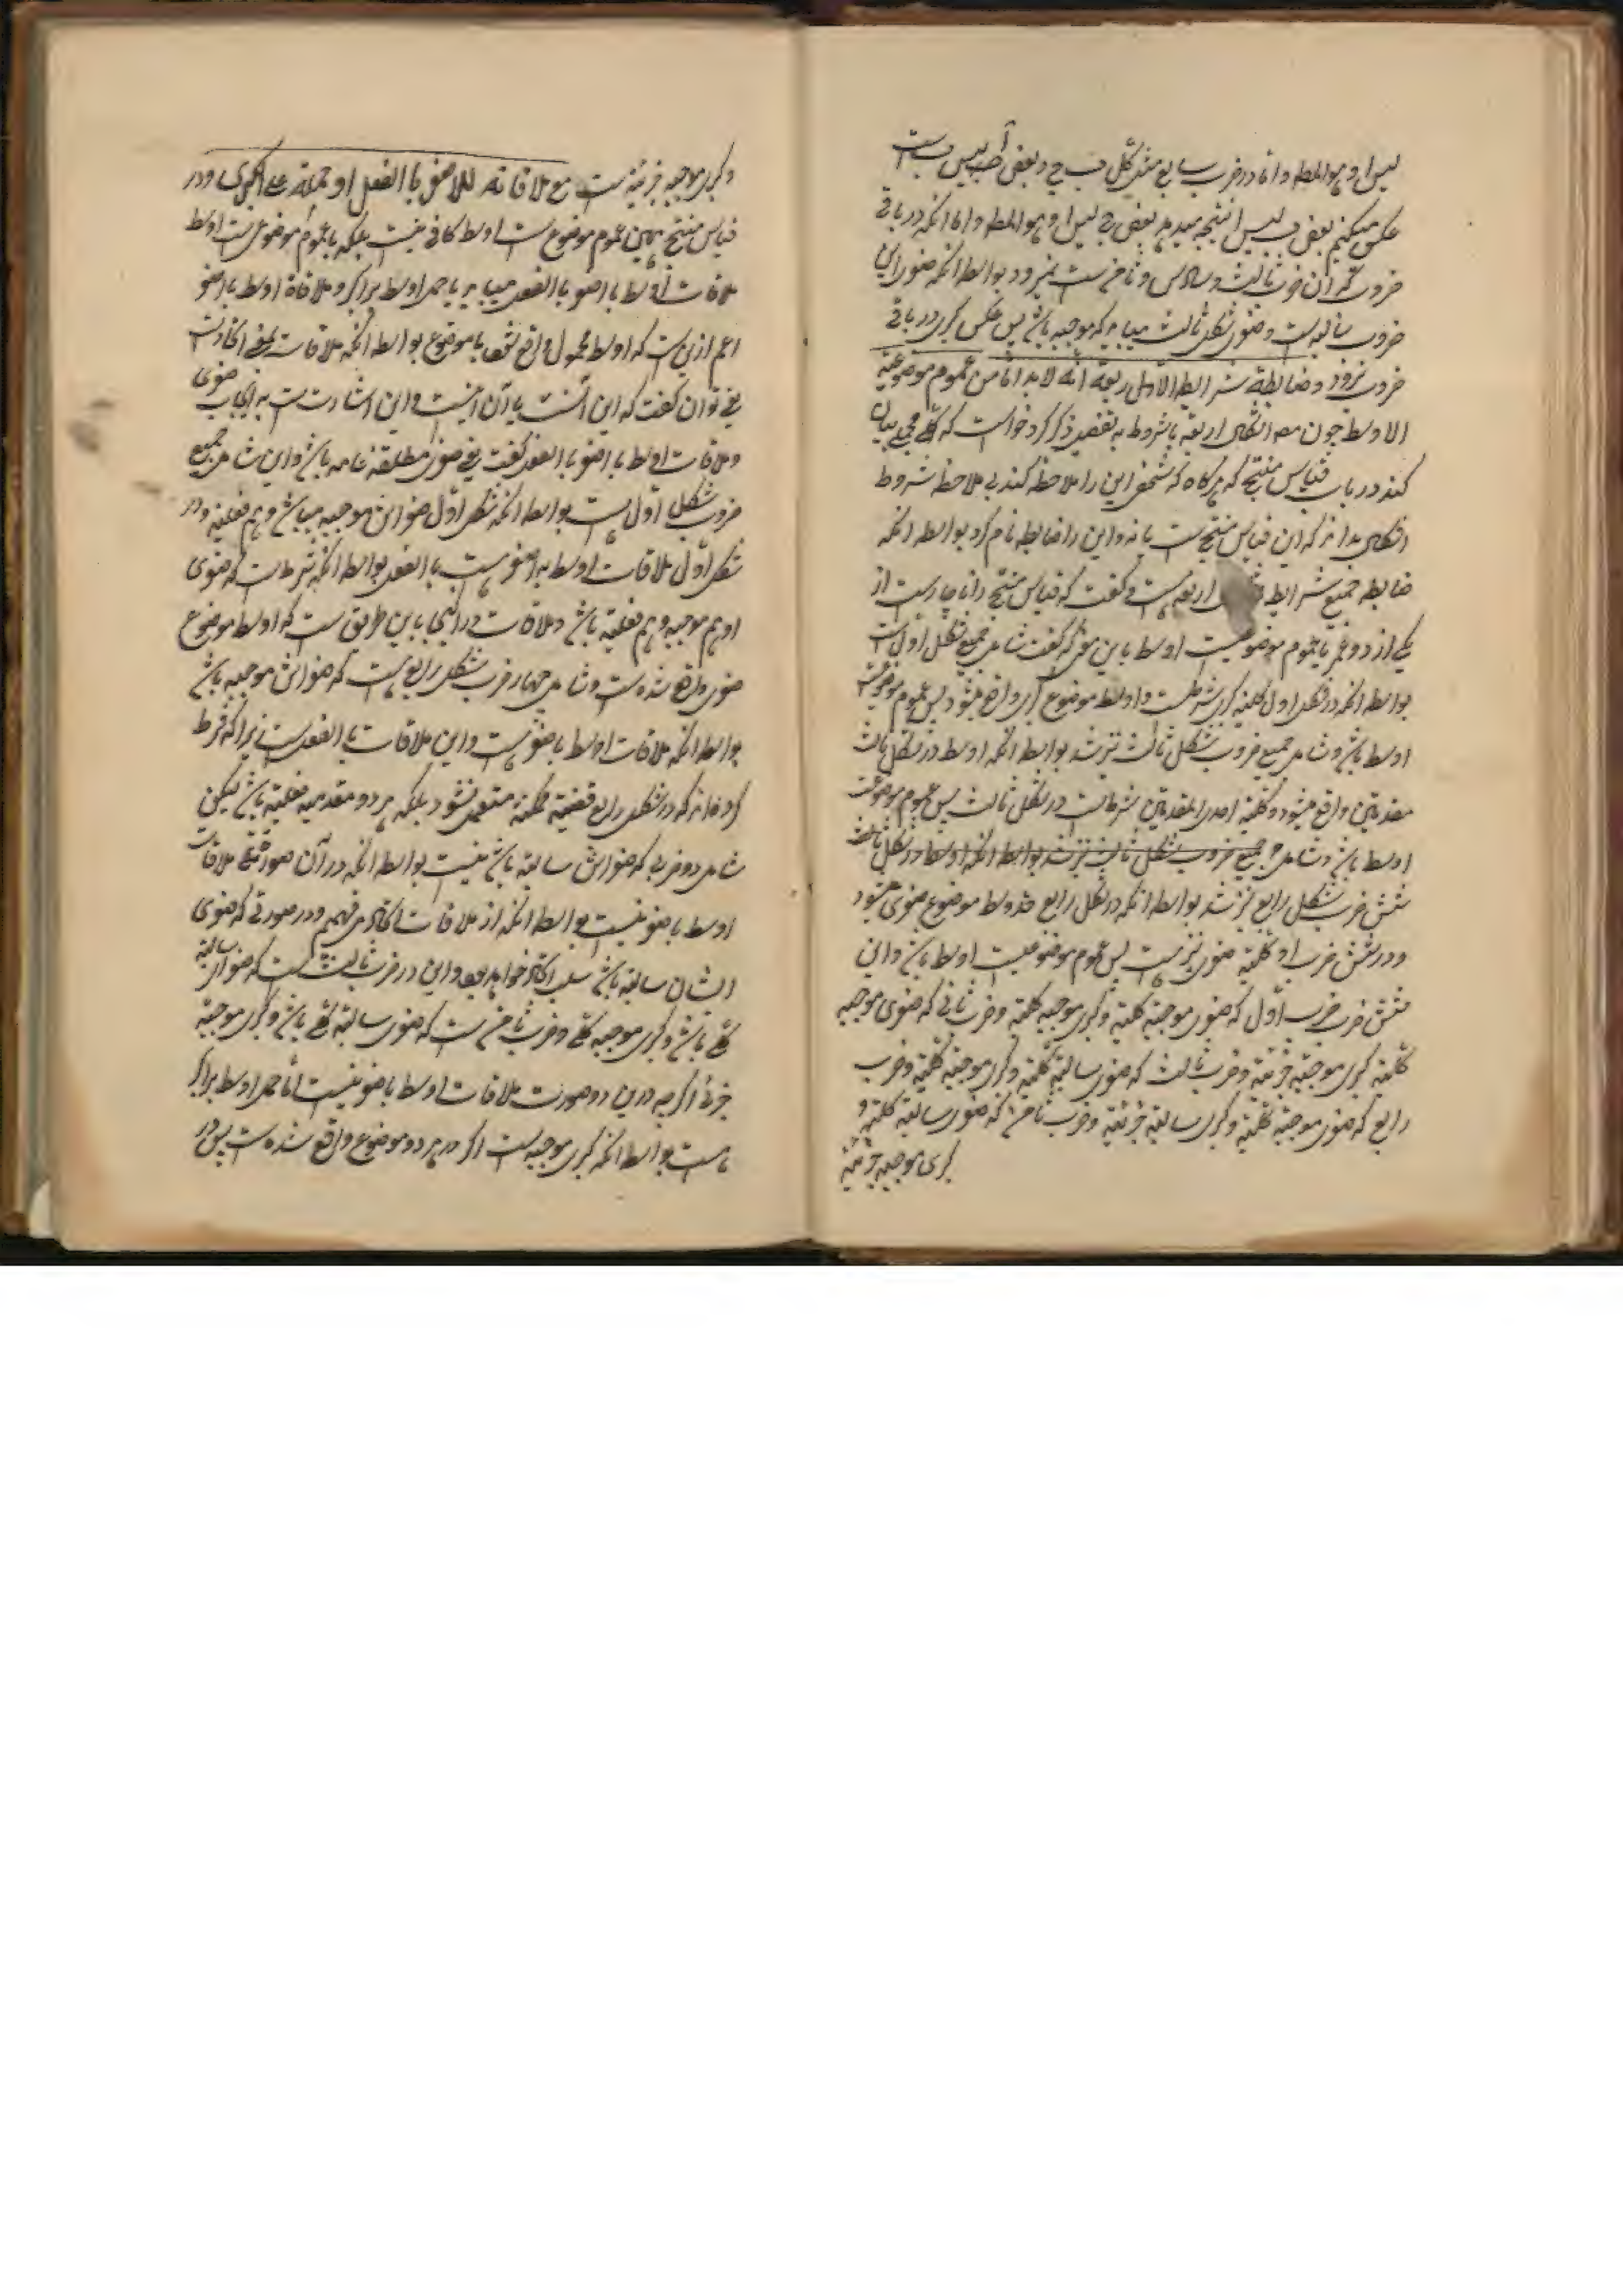 لیس ا و هو المط و اما در ضرب سابع مثل کل ب ج و بعض ا لیس ب است
عکس میکنیم بعض ب لیس ا نتیجه میدهد بعض ج لیس ا و هو المط و اما انکه در باقی
ضروب که آن ثالث و سادس و ثامن است نمیرود بواسطه انکه صغرای این
ضروب سالبه است و صغری شکل ثالث میباید که موجبه باشد پس عکس کبری در باقی
ضروب نرود و ضابطة شرایط الاربعة انه لا بد اما من عموم موضوعیة
الاوسط چون مص اشکال اربعه با شروط به تفصیل ذکر کرد خواست که کلی بیان
کند در باب قیاس منتج که هرگاه که شخص این را ملاحظه کند بی ملاحظه شروط
اشکال بداند که این قیاس منتج است یا نه و این را ضابطه نام کرد بواسطه انکه
ضابطه جمیع شرایط اربعه است و گفت که قیاس منتج را ناچار است از
یکی از دو امر یا عموم موضوعیت اوسط باین معنی که گفت شامل جمیع شکل اول است
بواسطه انکه در شکل اول کلیة کبری شرط است و اوسط موضوع کبری واقع میشود پس عموم موضوعیت
اوسط باشد و شامل جمیع ضروب شکل ثالث نیز شد بواسطه انکه اوسط در شکل ثالث
مقدمتین واقع میشود و کلیة احدی المقدمتین شرط است در شکل ثالث پس عموم موضوعیت
اوسط باشد و شامل جمیع ضروب شکل ثالث نیز شد بواسطه انکه اوسط در شکل ثالث
شش ضرب شکل رابع نیز شد بواسطه انکه در شکل رابع حد وسط موضوع صغری میشود
و در شش ضرب او کلیة صغری نیز است پس عموم موضوعیت اوسط باشد و این
شش ضرب ضرب اول که صغری موجبه کلیه و کبری موجبه کلیه و ضرب ثانی که صغری موجبه
کلیه کبری موجبه جزئیه و ضرب ثالث که صغری سالبه کلیه و کبری موجبه کلیه و ضرب
رابع که صغری موجبه کلیه و کبری سالبه جزئیه و ضرب ثامن که صغری سالبه کلیه و
کبری موجبه جزئیه
و کبری موجبه جزئیه است مع ملاقاته للاصغر بالفعل او حمله علی الاکبر و در
قیاس منتج همین عموم موضوع است اوسط کافی نیست بلکه با عموم موضوعیت اوسط
ملاقات اوسط با اصغر بالفعل میباید یا حمل اوسط بر اکبر و ملاقاة اوسط با اصغر
اعم ازین است که اوسط محمول واقع شود یا موضوع بواسطه انکه ملاقات بمعنی اتحاد است
یعنی توان گفت که این آنست یا آن اینست و این اشارت است به ایجاب صغری
و ملاقات اوسط با اصغر بالفعل گفت یعنی صغری مطلقه عامه باشد و این شامل جمیع
ضروب شکل اول است بواسطه انکه شکل اول صغرایش موجبه میباشد و هم فعلیه و در
شکل اول ملاقات اوسط به اصغر است بالفعل بواسطه انکه شرط است که صغری
او هم موجبه و هم فعلیه باشد و ملاقات در اینجا باین طریق است که اوسط موضوع
صغری واقع شده است و شامل چهار ضرب شکل رابع است که صغرایش موجبه باشد
بواسطه انکه ملاقات اوسط با صغری است و این ملاقات بالفعل است زیرا که شرط
کرده‌اند که در شکل رابع قضیه ممکنه مستعمل نشود بلکه هر دو مقدمه فعلیه باشد لیکن
شامل دو ضربی که صغرایش سالبه باشد نیست بواسطه انکه در آن صورت ملاقات
اوسط با صغری نیست بواسطه انکه از ملاقات اتحاد میفهم و در صورتی که صغری
ایشان سالبه باشد سلب اتحاد خواهد بود و این در ضرب ثالث است که صغرای سالبه
کلی باشد و کبری موجبه کلی و ضرب ثامن است که صغری سالبه کلی باشد و کبری موجبه
جزئی اگرچه درین دو صورت ملاقات اوسط با صغری نیست اما حمل اوسط بر اکبر
هست بواسطه انکه کبری موجبه است اگر در هر دو موضوع واقع شده است پس در